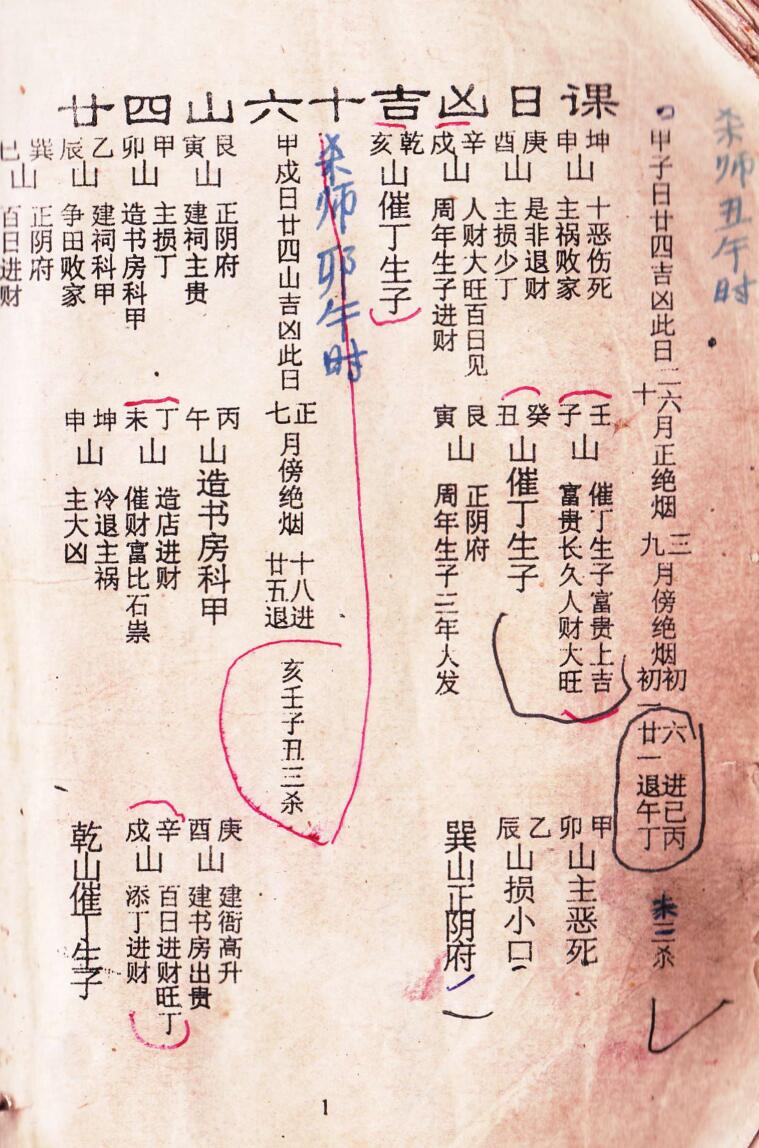 廿四山六十吉凶日课
杀师丑午时
甲子日廿四吉凶此日二六十月正绝烟三九月傍绝烟初六进初一廿一退巳丙午丁未三杀
坤申山 十恶伤死 主祸败家
庚酉山 是非退财 主损少丁
辛戌山 人财大旺百日见 周年生子进财
乾亥山催丁生子
壬子山 催丁生子富贵上吉 富贵长久人财大旺
癸丑山催丁生子
艮寅山 正阴府 周年生子三年人发
甲卯山主恶死
乙辰山损小口
巽山正阴府
杀师卯午时
甲戍日廿四山吉凶此日正七月傍绝烟十八进廿五退亥壬子丑三杀
艮寅山 正阴府 建祠主贵
甲卯山 主损丁 造书房科甲
乙辰山 建祠科甲 争田败家
巽巳山 正阴府 百日进财
丙午山造书房科甲
丁未山 造店进财 催财富比石崇
坤申山 冷退主祸 主大凶
庚酉山 建衙高升 建书房出贵
辛戍山 百日进财旺丁 添丁进财
乾山催丁生子
1